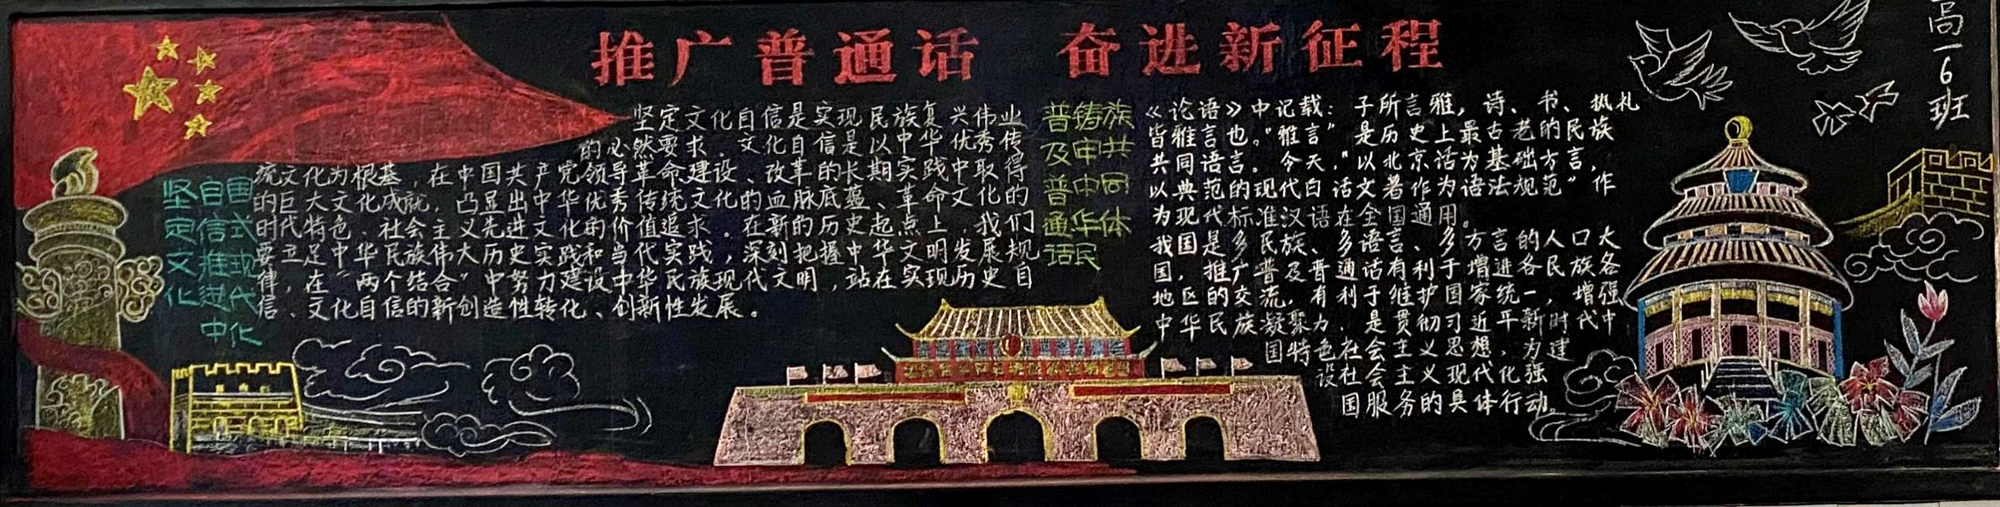 推广普通话 奋进新征程
高一6班
坚定文化
自信推进
国式现代
中化
坚定文化自信是实现民族复兴伟业
的必然要求。文化自信是以中华优秀传
统文化为根基，在中国共产党领导革命、建设、改革的长期实践中取得
的巨大文化成就，凸显出中华优秀传统文化的血脉底蕴、革命文化的
时代特色、社会主义先进文化的价值追求。在新的历史起点上，我们
要立足中华民族伟大历史实践和当代实践，深刻把握中华文明发展规
律，在“两个结合”中努力建设中华民族现代文明，站在实现历史自
信、文化自信的新创造性转化、创新性发展。
普及普通话
铸牢中华民
族共同体
《论语》中记载：子所言雅，诗、书、执礼
皆雅言也。“雅言”是历史上最古老的民族
共同语言。今天，“以北京话为基础方言，
以典范的现代白话文著作为语法规范”作
为现代标准汉语在全国通用。
我国是多民族、多语言、多方言的人口大
国，推广普及普通话有利于增进各民族各
地区的交流，有利于维护国家统一，增强
中华民族凝聚力，是贯彻习近平新时代中
国特色社会主义思想，为建
设社会主义现代化强
国服务的具体行动。